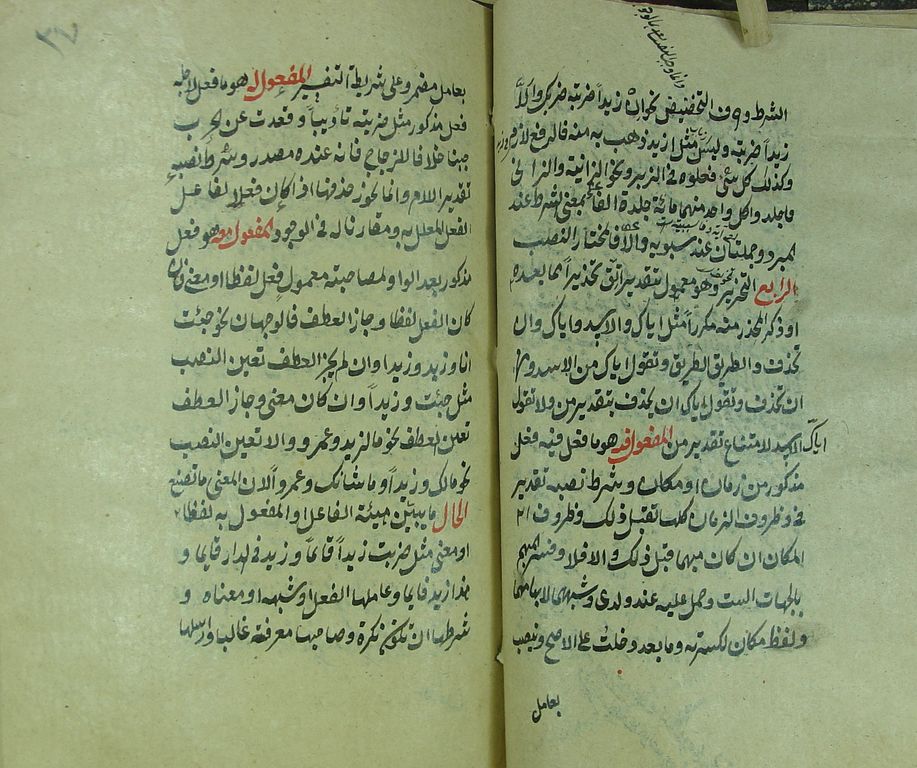 الشرط وحرف التحضيض نحو ان زيدا ضربته ضربك والا
زيدا ضربته وليس مثل ازيد ذهب به منه فالرفع لازم
وكذلك كل شئ فعلوه في الزبر ونحو الزانية والزاني
فاجلدوا كل واحد منهما مائة جلدة الفاء بمعنى الشرط عند
المبرد وجملتان عند سيبويه والا فالمختار النصب
الرابع التحذير وهو معمول بتقدير اتق تحذيرا مما بعده
او ذكر المحذر منه مكررا مثل اياك والاسد واياك وان
تحذف والطريق الطريق وتقول اياك من الاسد ومن
ان تحذف وتقول اياك ان تحذف بتقدير من ولا تقول
اياك الاسد لامتناع تقدير من المفعول فيه هو ما فعل فيه فعل
مذكور من زمان او مكان وشرط نصبه تقدير
في وظروف الزمان كلها تقبل ذلك وظروف
المكان ان كان مبهما قبل ذلك والا فلا وفسر المبهم
بالجهات الست وحمل عليه عند ولدى وشبههما لابهامهما
ولفظ مكان لكثرته وما بعد دخلت على الاصح وينصب
بعامل
٣٧
بعامل مضمر وعلى شريطة التفسير المفعول له هو ما فعل لاجله
فعل مذكور مثل ضربته تأديبا وقعدت عن الحرب
جبنا خلافا للزجاج فانه عنده مصدر وشرط نصبه
تقدير اللام وانما يجوز حذفها اذا كان فعلا لفاعل
الفعل المعلل به ومقارنا له في الوجود المفعول معه هو فعل
مذكور بعد الواو لمصاحبة معمول فعل لفظا او معنى فان
كان الفعل لفظا وجاز العطف فالوجهان نحو جئت
انا وزيد وزيدا وان لم يجز العطف تعين النصب
مثل جئت وزيدا وان كان معنى وجاز العطف
تعين العطف نحو ما لزيد وعمرو والا تعين النصب
نحو مالك وزيدا وما شانك وعمروا لان المعنى ما تصنع
الحال ما يبين هيئة الفاعل او المفعول به لفظا
او معنى مثل ضربت زيدا قائما وزيد في الدار قائما و
هذا زيد قائما وعاملها الفعل او شبهه او معناه و
شرطها ان تكون نكرة وصاحبها معرفة غالبا وارسلها